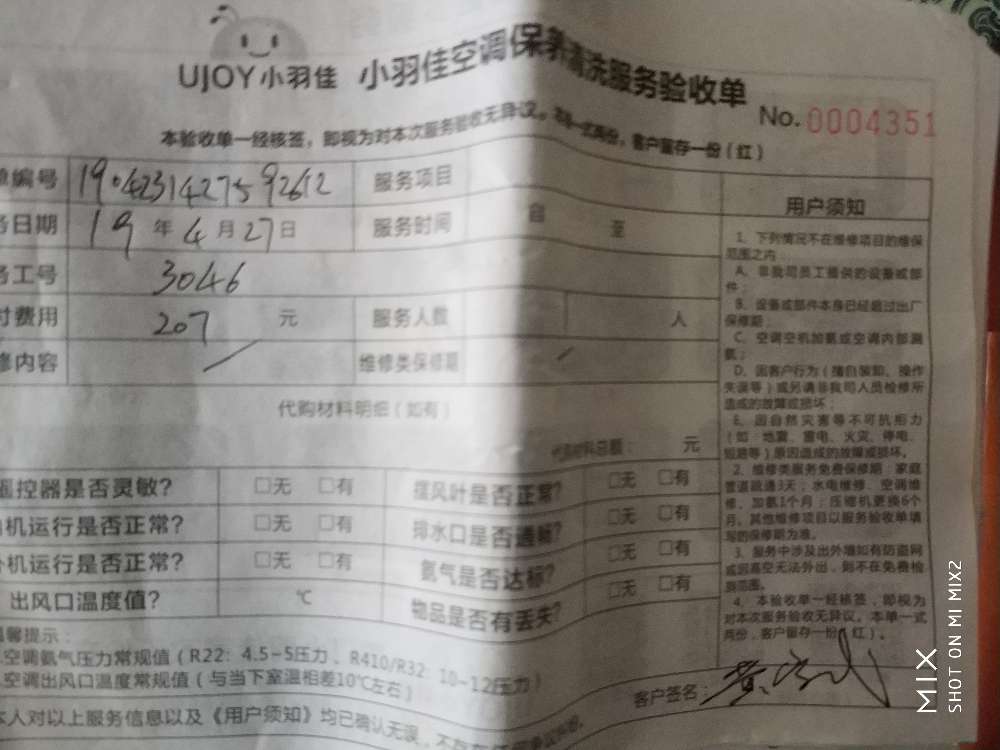 UJOY小羽佳 小羽佳空调保养清洗服务验收单
No.0004351
本验收单一经核签，即视为对本次服务验收无异议。本单一式两份，客户留存一份（红）
单编号 1904231427592612 服务项目
务日期 19年4月27日 服务时间 自 至
务工号 3046
付费用 207 元 服务人数 人
修内容 / 维修类保修期 /
代购材料明细（如有）
代购材料总额： 元
遥控器是否灵敏？ □无 □有 摆风叶是否正常？ □无 □有
内机运行是否正常？ □无 □有 排水口是否通畅？ □无 □有
外机运行是否正常？ □无 □有 氨气是否达标？ □无 □有
出风口温度值？ ℃ 物品是否有丢失？ □无 □有
温馨提示：
空调氨气压力常规值（R22：4.5-5压力、R410/R32：10-12压力）
空调出风口温度常规值（与当下室温相差10℃左右）
本人对以上服务信息以及《用户须知》均已确认无误，不存在任何
用户须知
1、下列情况不在维修项目的维保
范围之内：
A、非我司员工提供的设备或部
件；
B、设备或部件本身已经超过出厂
保修期；
C、空调空机加氨或空调内部漏
氨；
D、因客户行为（擅自装卸、操作
失误等）或另请非我司人员检修所
造成的故障或损坏；
E、因自然灾害等不可抗拒力
（如：地震、雷电、火灾、停电、
短路等）原因造成的故障或损坏。
2、维修类服务免费保修期：家庭
管道疏通3天；水电维修、空调维
修、加氨1个月；压缩机更换6个
月。其他维修项目以服务验收单填
写的保修期为准。
3、服务中涉及出外墙如有防盗网
或因高空无法外出，则不在免费检
测范围。
4、本验收单一经核签，即视为
对本次服务验收无异议。本单一式
两份，客户留存一份（红）。
客户签名：
MIX
SHOT ON MI MIX2